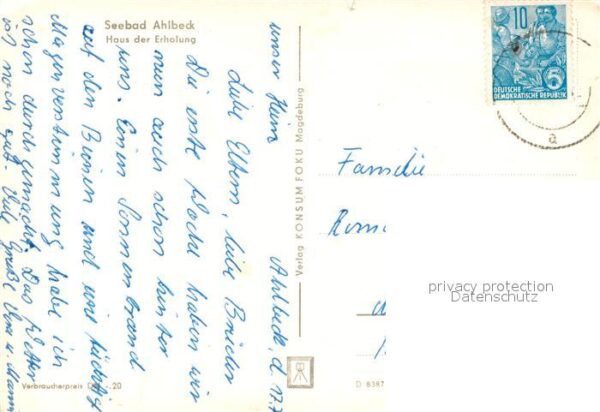 Seebad Ahlbeck
Haus der Erholung
unser Heim
Ahlbeck d. 17.7
Liebe Eltern, liebe Brüder
Die erste Woche haben wir
nun auch schon hinter
uns. Einen Sonnenbrand
auf den Beinen und eine tüchtige
Magenverstimmung habe ich
schon durchgemacht. Das Wetter
ist noch gut. Viele Grüße u. Mann
Verbraucherpreis DM -.20
Verlag KONSUM FOKU Magdeburg
10
5
DEUTSCHE
DEMOKRATISCHE REPUBLIK
a
Familie
privacy protection
Datenschutz
D 8387